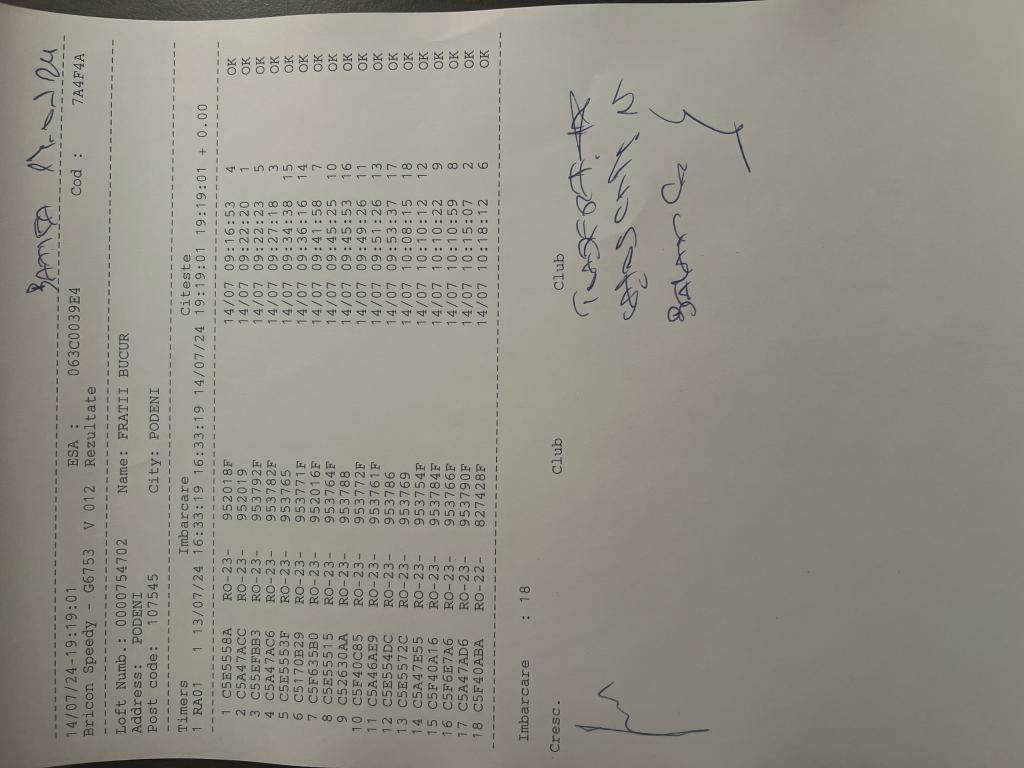 14/07/24-19:19:01 ESA : 063C0039E4 Cod : 7A4F4A
Bricon Speedy - G6753 V 012 Rezultate
Loft Numb.: 0000754702 Name: FRATII BUCUR
Address: PODENI
Post code: 107545 City: PODENI
Timers Imbarcare Citeste
1 RA01 1 13/07/24 16:33:19 16:33:19 14/07/24 19:19:01 19:19:01 + 0.00
1 C5E5558A RO-23- 952018F 14/07 09:16:53 4 OK
2 C5A47ACC RO-23- 952019 14/07 09:22:20 1 OK
3 C55EFBB3 RO-23- 953792F 14/07 09:22:23 5 OK
4 C5A47AC6 RO-23- 953782F 14/07 09:27:18 3 OK
5 C5E5553F RO-23- 953765 14/07 09:34:38 15 OK
6 C5170B29 RO-23- 953771F 14/07 09:36:16 14 OK
7 C5F635B0 RO-23- 952016F 14/07 09:41:58 7 OK
8 C5E55515 RO-23- 953764F 14/07 09:45:25 10 OK
9 C52630AA RO-23- 953788 14/07 09:45:53 16 OK
10 C5F40C85 RO-23- 953772F 14/07 09:49:26 11 OK
11 C5A46AE9 RO-23- 953761F 14/07 09:51:26 13 OK
12 C5E554DC RO-23- 953786 14/07 09:53:37 17 OK
13 C5E5572C RO-23- 953769 14/07 10:08:15 18 OK
14 C5A47E55 RO-23- 953754F 14/07 10:10:12 12 OK
15 C5F40A16 RO-23- 953784F 14/07 10:10:22 9 OK
16 C5F6E7A6 RO-23- 953766F 14/07 10:10:59 8 OK
17 C5A47AD6 RO-23- 953790F 14/07 10:15:07 2 OK
18 C5F40ABA RO-22- 827428F 14/07 10:18:12 6 OK
Imbarcare : 18
Cresc. Club Club